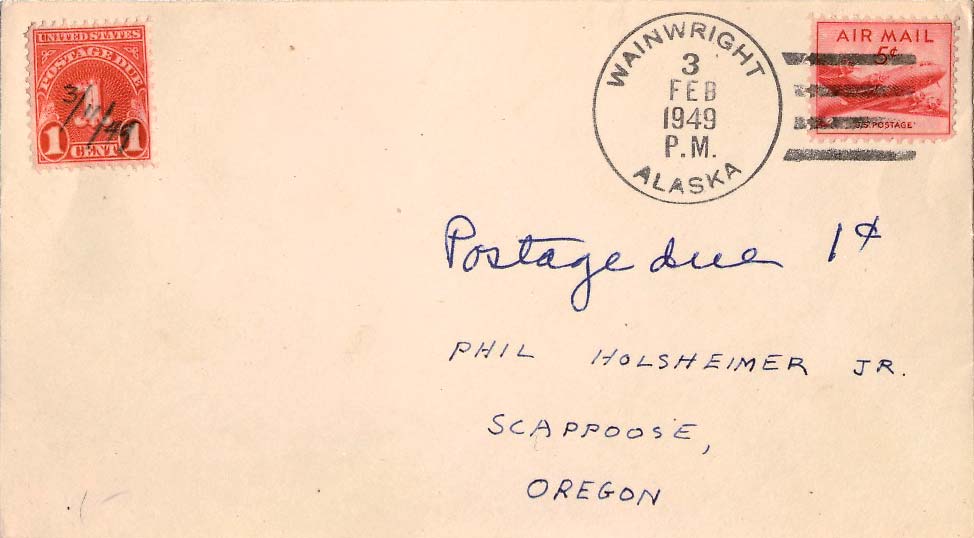 UNITED STATES
POSTAGE DUE
1
1 CENT 1
WAINWRIGHT
3
FEB
1949
P.M.
ALASKA
AIR MAIL
5¢
U.S. POSTAGE
Postage due 1¢
PHIL HOLSHEIMER JR.
SCAPPOOSE,
OREGON